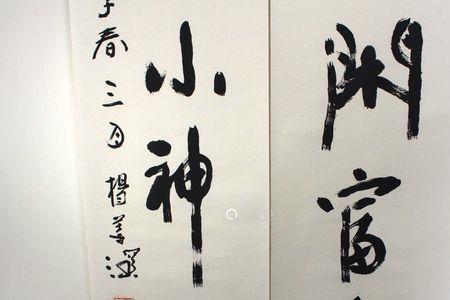 富
小神
子春三月楊善深